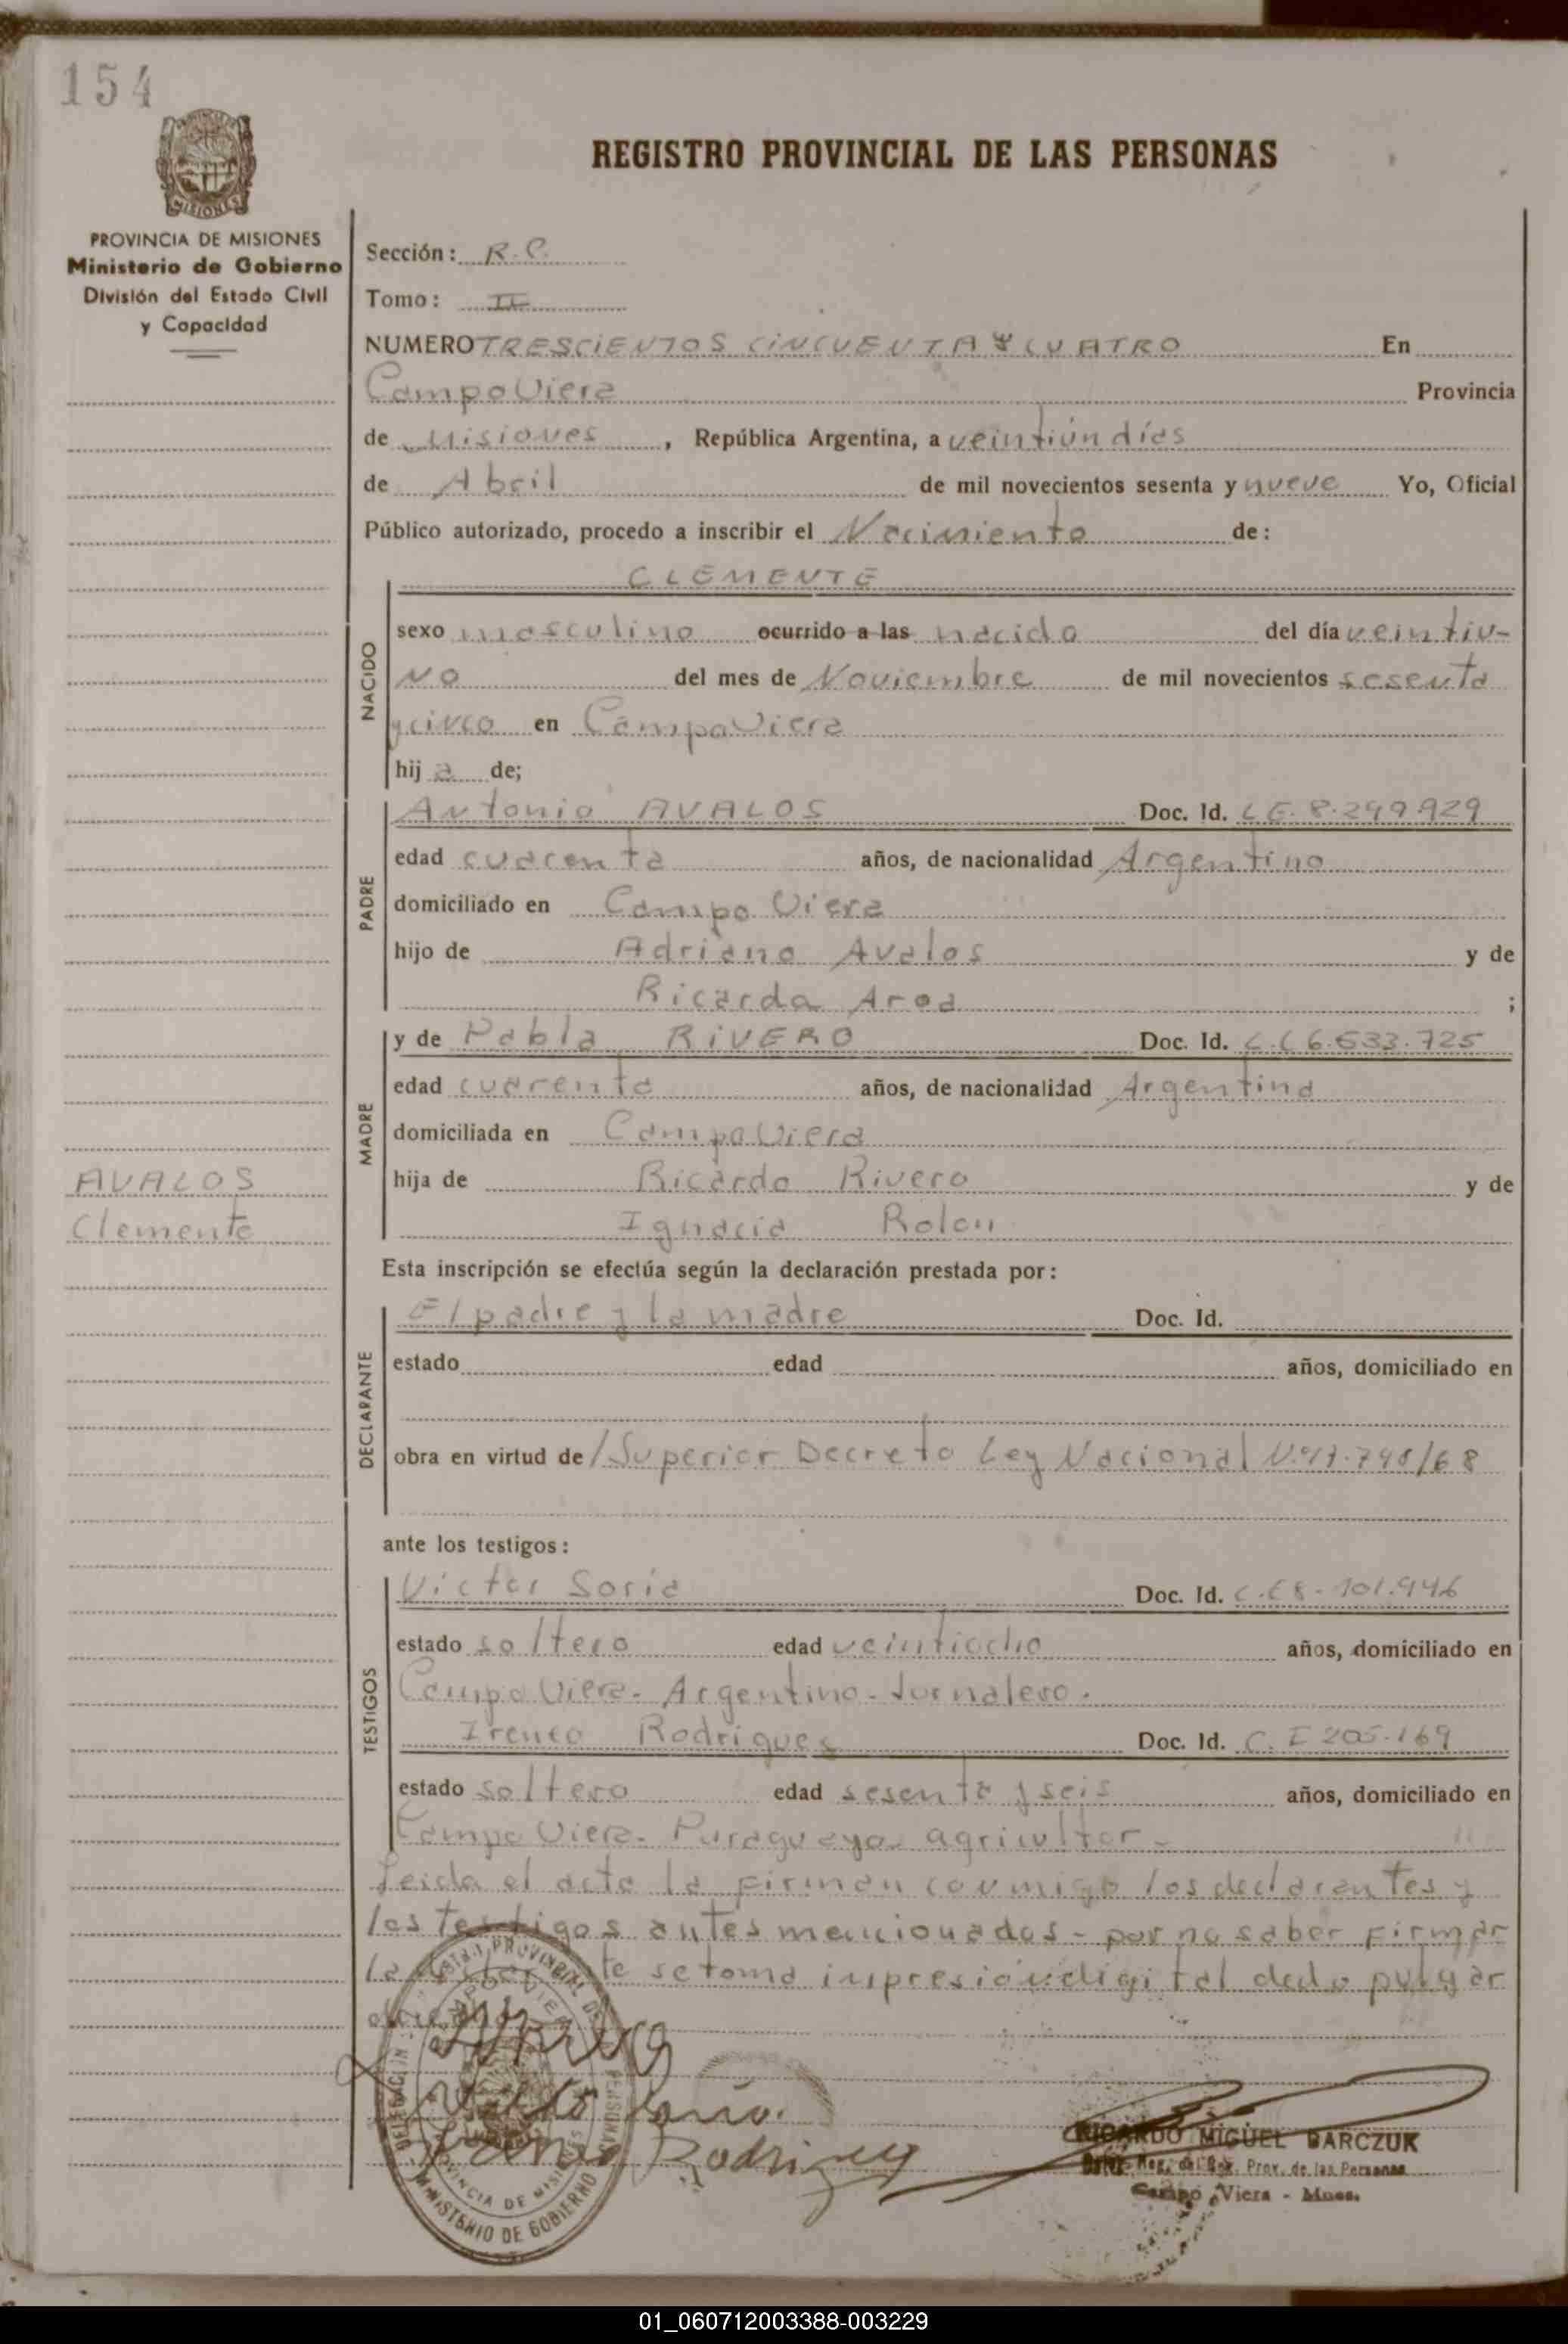 154
MISIONES
PROVINCIA DE MISIONES
Ministerio de Gobierno
División del Estado Civil
y Capacidad
REGISTRO PROVINCIAL DE LAS PERSONAS
Sección: R.C.
Tomo: II
NUMERO TRESCIENTOS CINCUENTA Y CUATRO En
Campo Viera Provincia
de Misiones, República Argentina, a veintiún días
de Abril de mil novecientos sesenta y nueve Yo, Oficial
Público autorizado, procedo a inscribir el Nacimiento de:
CLEMENTE
NACIDO
sexo masculino ocurrido a las nacido del día veintiu-
no del mes de Noviembre de mil novecientos sesenta
y cinco en Campo Viera
hij a de;
PADRE
Antonio AVALOS Doc. Id. L.E. 8.249.929
edad cuarenta años, de nacionalidad Argentino
domiciliado en Campo Viera
hijo de Adriano Avalos y de
Ricarda ;
MADRE
y de Pabla RIVERO Doc. Id. 6.633.725
edad cuarenta años, de nacionalidad Argentina
domiciliada en Campo Viera
hija de Ricardo Rivero y de
Ignacia Rolon
AVALOS
Clemente
Esta inscripción se efectúa según la declaración prestada por:
DECLARANTE
El padre y la madre Doc. Id.
estado edad años, domiciliado en
obra en virtud de / Superior Decreto Ley Nacional
ante los testigos:
TESTIGOS
Victor Soria Doc. Id.
estado soltero edad veintiocho años, domiciliado en
Campo Viera - Argentino - Jornalero.
Ireneo Rodrigues Doc. Id. C. I 205.169
estado soltero edad sesenta y seis años, domiciliado en
Campo Viera - Paraguayo - agricultor -
Leida el acta la firman conmigo los declarantes y
los testigos antes mencionados - por no saber firmar
la se toma impresión digital dedo pulgar
PROVINCIA DE MISIONES
MINISTERIO DE GOBIERNO
Rodriguez
RICARDO MIGUEL BARCZUK
Prov. de las Personas
Campo Viera - Mnes.
01_060712003388-003229